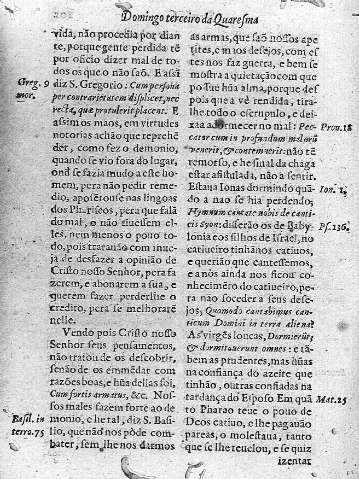 Domingo terceiro da Quaresma
vida, não procedia por dian
te, porque gente perdida tē
por oficio dizer mal de to-
dos os que o não saõ. E assi
diz S. Gregorio: Cum persona
per contrarietatem displicet, nec
recta, quæ protulerit placent. E
assim os maos, em virtudes
notorias achão que reprehē
der, como fez o demonio,
quando se vio fora do lugar,
ond se fazia mudo a este ho
mem, pera não pedir reme-
dio, aposērouse nas lingoas
dos Phariseos, pera que falã
do mal, o não tiuessem el-
les, nem menos o pouo to-
do, pois tratarão com inue-
ja de desfazer a opinião de
Cristo nosso Senhor, pera fa
zerem, e abonarem a sua, e
querem fazer perderlhe o
credito, pera se melhorarē
nelle.
Vendo pois Cristo nosso
Senhor seus pensamentos,
não tratou de os descobrir,
senão de os emmēdar com
razões boas, e hũa dellas foi,
Cum fortis armatus, &c. Nos-
sos males fazem forte ao de
monio, e he tal, diz S. Basi-
lio, que não nos pòde com-
bater, sem lhe nos darmos
Greg. 9
mor.
Basil. in
terro. 75
as armas, que saõ nossos ape
tites, e nos desejos, com es
tes nos faz guerra, e bem se
mostra a quietação com que
possue hũa alma, porque des
pois que a vē rendida, tira-
lhe todo o escrupulo, e dei-
xaa adormecer no mal: Pec-
cator cum in profundum malorũ
venerit, contemnit: não tē
remorso, e he sinal da chaga
estar afistulada, não a sentir.
Estaua Ionas dormindo quã-
do a nao se hia perdendo;
Hymnum cantate nobis de canti
cis Syon: disserão os de Baby
lonia e os filhos de Israel, no
catiueiro tinhãnos catiuos,
e querião que cantessemos,
e a nòs ainda nos ficou co-
nhecimēro do catiueiro, pe-
ra não soceder a seus dese-
jos, Quomodo cantabimus can-
ticum Domini in terra aliena?
As virgēs loucas, Dormierūt,
& dormitauerunt omnes: e tã-
bem as prudentes, mas hũas
na confiança do azeite que
tinhão, outras confiadas na
tardança do Esposo Em quã
to Pharao teue o pouo de
Deos catiuo, e lhe pagauão
pareas, o molestaua, tanto
que se lhe reuelou, e se quiz
izentar
Prou. 18
Ion. 1.
Ps. 136.
Mat. 25